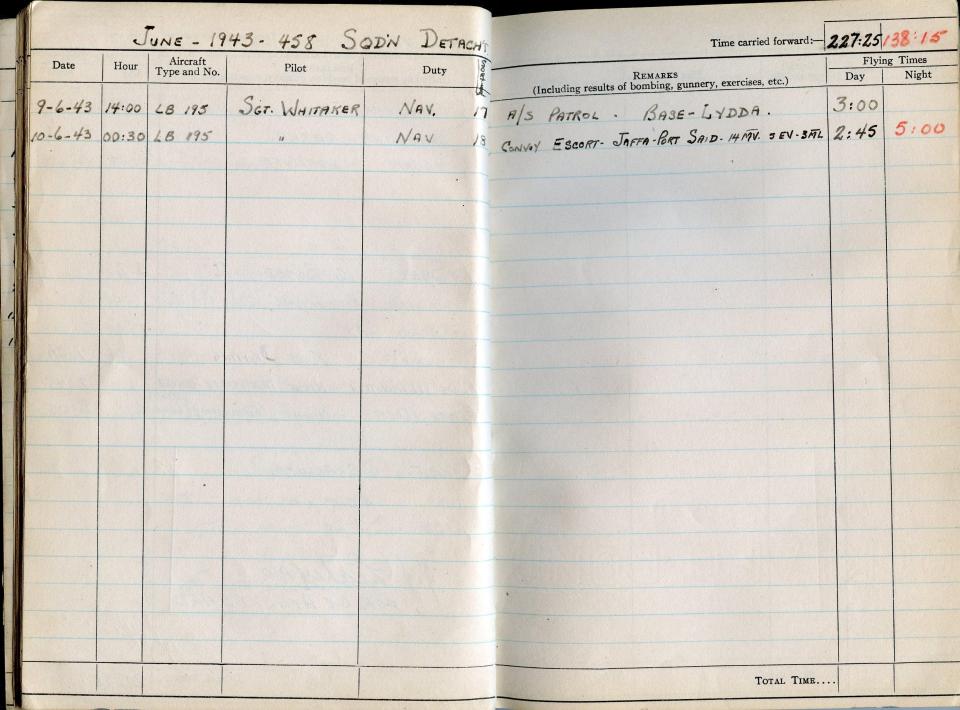 JUNE - 1943 - 458 SQD'N DETACH'T
Time carried forward:— 227:25 138:15
Date Hour Aircraft Type and No. Pilot Duty
REMARKS
(Including results of bombing, gunnery, exercises, etc.)
Flying Times
Day Night
9-6-43 14:00 LB 195 SGT. WHITAKER NAV. 17 A/S PATROL . BASE-LYDDA . 3:00
10-6-43 00:30 LB 195 " NAV 18 CONVOY ESCORT- JAFFA-PORT SAID- 14 MV. 5 EV-3ML 2:45 5:00
TOTAL TIME....